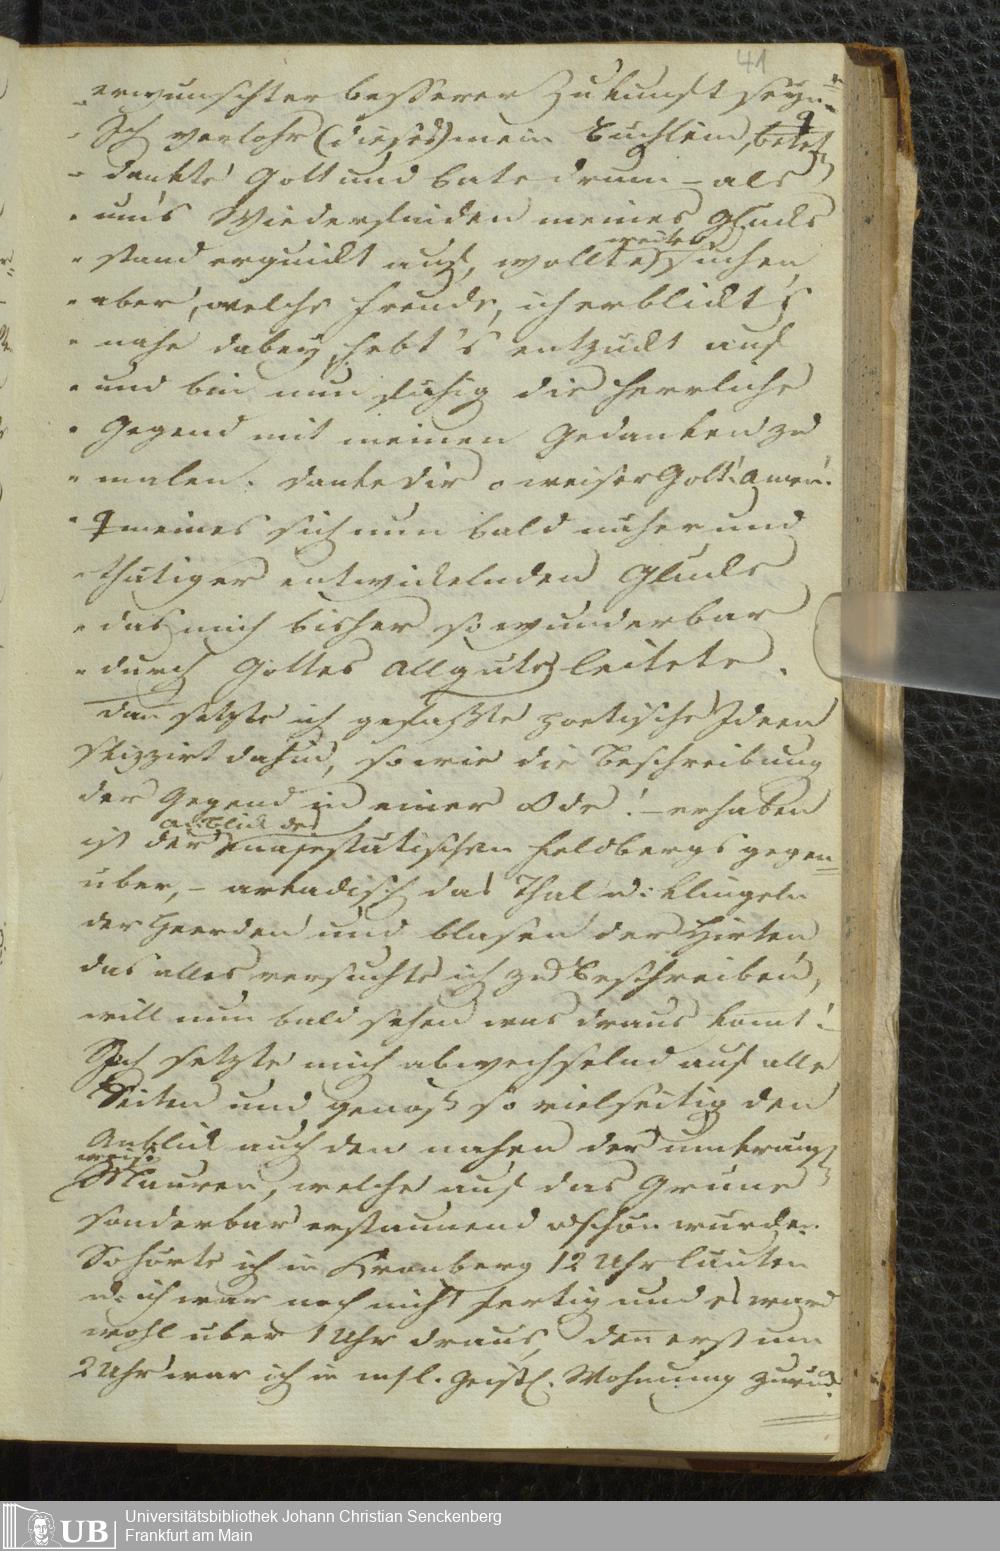 41
erwünschter besserer Zukunft seyn
Ich verlohr (dieses) mein Büchlein, betete
dankte Gott und bate drum – als
um's Wiederfinden meines Glücks
stand erquickt auf, wollte weiter suchen
aber, welche Freude, ich erblickt's
nahe dabey, hebt's entzückt auf
und bin nun fähig die herrliche
Gegend mit meinen Gedanken zu
malen. danke dir o weiser Gott! Amen!
meines sich nun bald näher und
thätiger entwickelnden Glücks
das mich bisher so wunderbar
durch Gottes Allgüte leitete.
Dan setzte ich gefaßte poetische Ideen
skizzirt dahin, sowie die Beschreibung
der Gegend in einer Ode! – erhaben
ist der Anblick des majestätischen Feldbergs gegen=
über, – arkadisch das Thal u: Klingeln
der Heerden und blasen der Hirten
das alles versuchte ich zu beschreiben,
will nun bald sehen was draus komt! –
Ich setzte mich abwechselnd auf alle
Seiten und genoß so vielseitig den
Anblick auch den nahen der
weise Mauren, welche auf das Grüne
sonderbar erstaunend schön wurden.
So hörte ich in Kronberg 12 Uhr läuten
u: ich war noch nicht fertig und es ward
wohl über 1 Uhr draus, den erst um
2 Uhr war ich in mfl. geistl. Wohnung zurück.
UB
Universitätsbibliothek Johann Christian Senckenberg
Frankfurt am Main